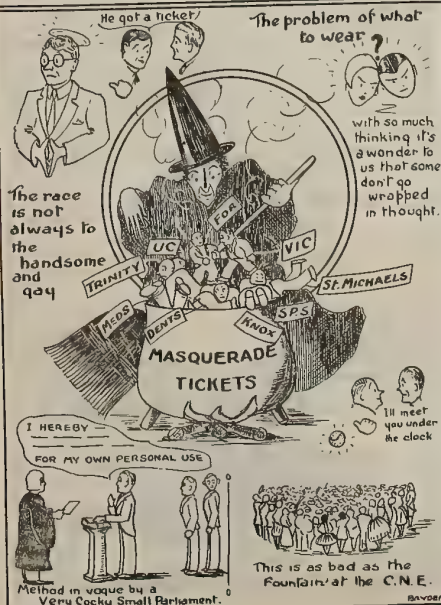 He got a ticket!
The problem of what
to wear ?
with so much
thinking it's
a wonder to
us that some
don't go
wrapped
in thought.
The race
is not
always to
the
handsome
and
gay
FOR
UC
VIC
TRINITY
St. MICHAELS
MEDS
DENTS
KNOX
S.P.S
MASQUERADE
TICKETS
I'll meet
you under
the clock
I HEREBY
FOR MY OWN PERSONAL USE
Method in vogue by a
Very Cocky Small Parliament.
This is as bad as the
Fountain' at the C.N.E.